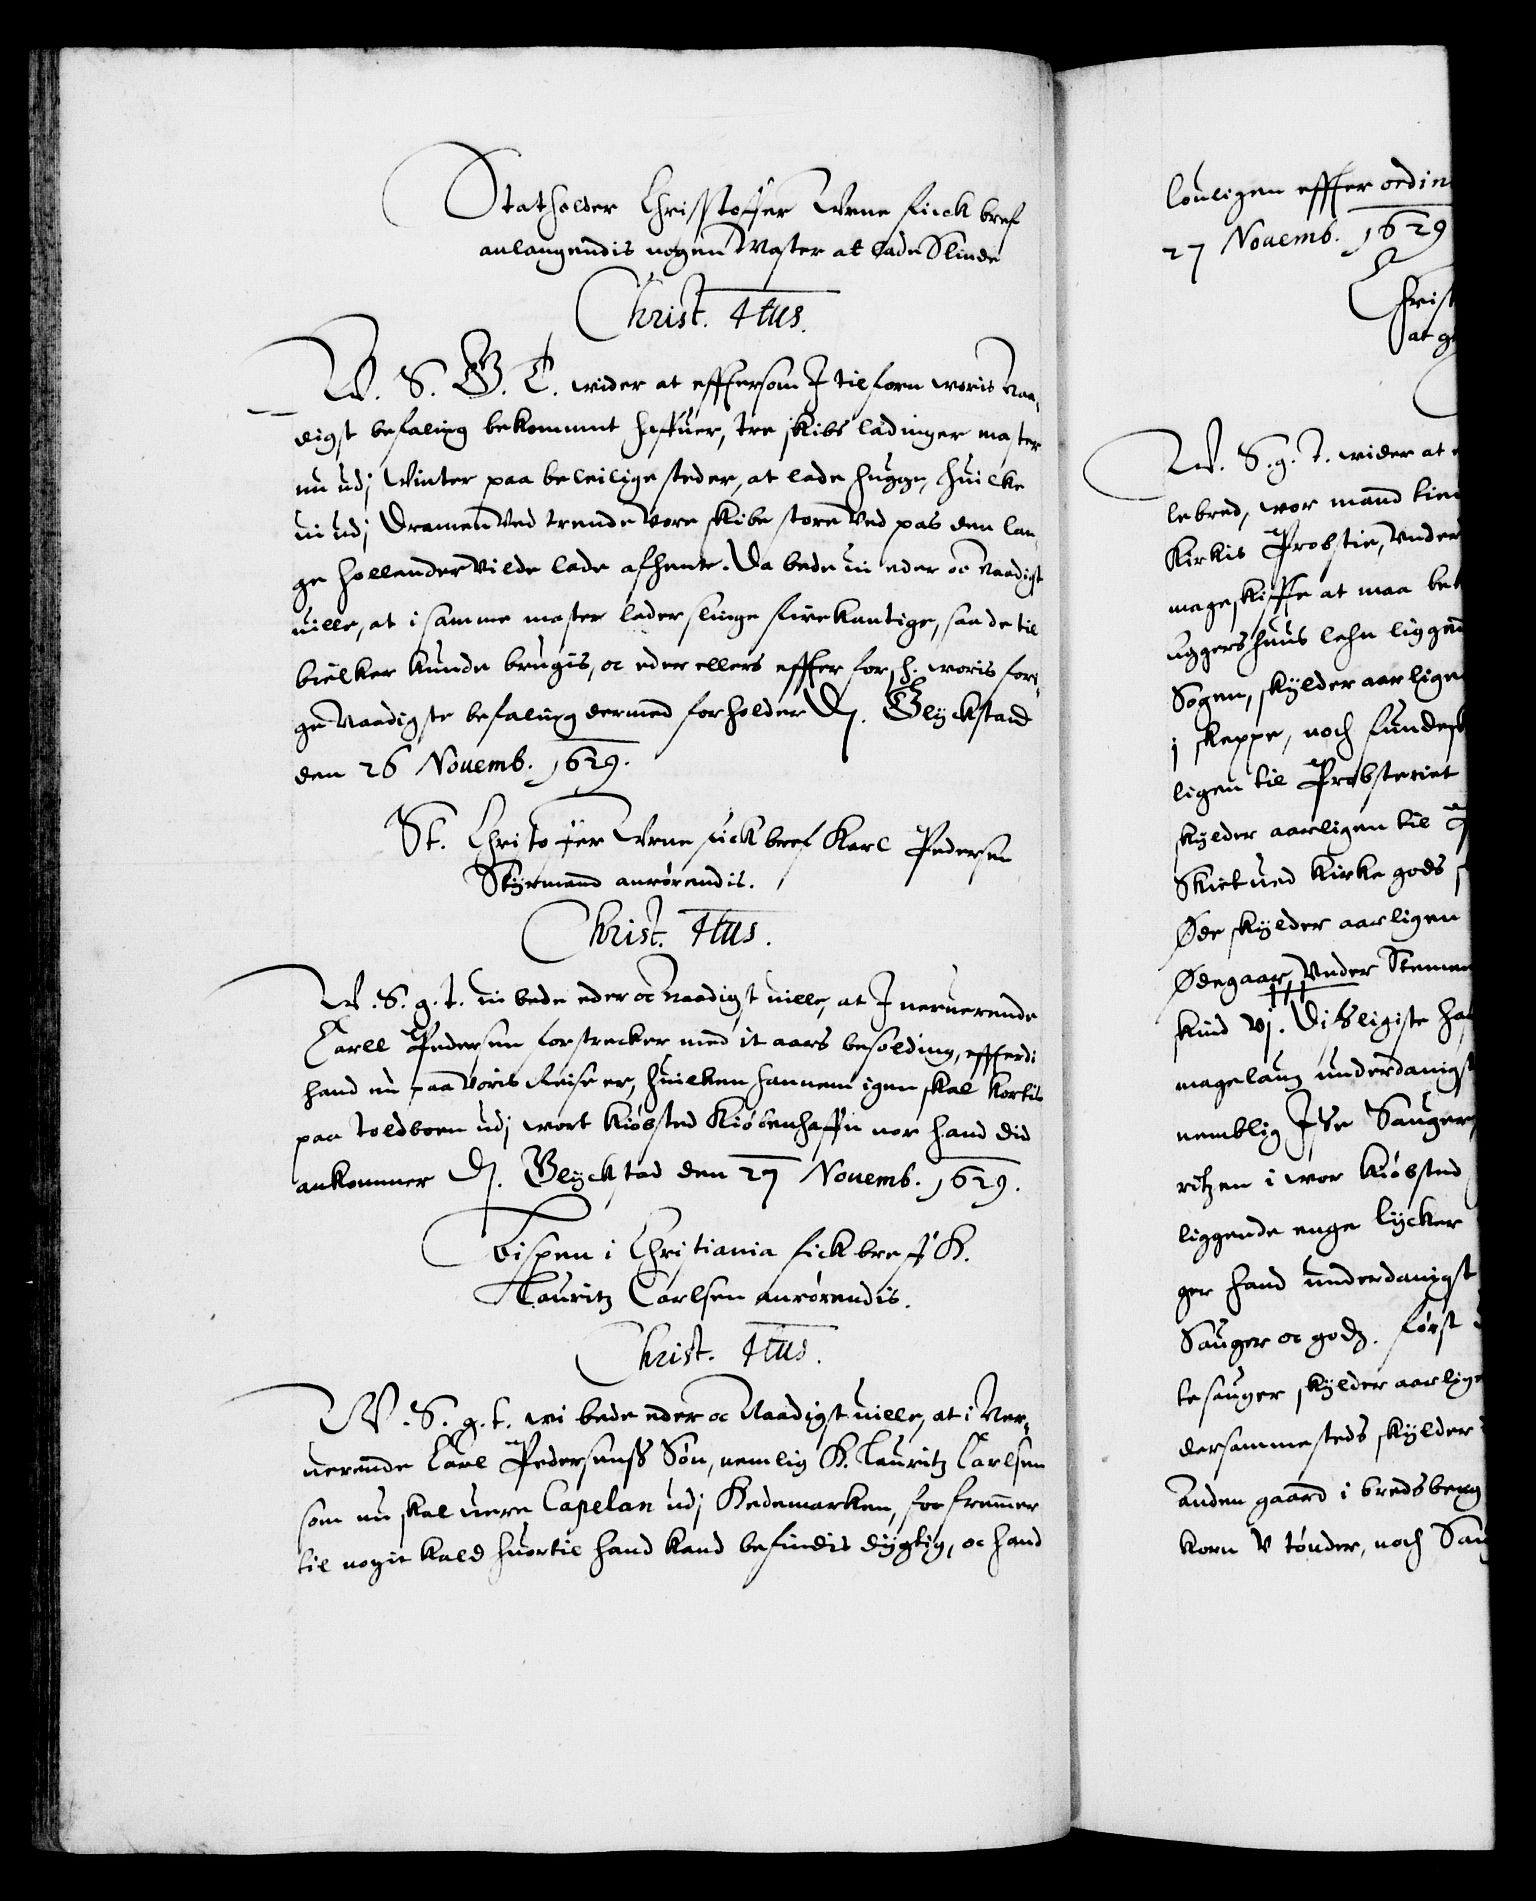 Statholder Christoffer Vrne fick bref
anlangendis nogen Master at lade Slinde
Christ. 4tus.
W. S. G. T. wider at effterson J tilforn woris Naa-
digst befaling bekommit haffuer, tre skibs ladinger master
nu udj Winter paa beleilige steder, at lade hugge, huilke
ui udj Dramen Ved trende Vore skibe store Ved pas den lan-
ge hollender Vilde lade afhente. Da bede ui eder oc Naadigst
uille, at i samme master lader slinge firekantige, saa de til
bielker kunde brugis, oc eder ellers effter forsch. woris fori-
ge Naadigste befaling dermed forholder Dj. Glyckstad
den 26 Nouemb. 1629.
St. Christoffer Vrne fick bref Karl Pedersen
Styrmand anrørendis.
Christ. 4tus.
W. S. g. t. ui bede eder oc Naadigst uille, at J neruerende
Carll Pedersen forstrecker med it aars besolding, effterdi
hand nu paa Voris Reise er, huilken hannem igen skal kortis
paa toldboen udj wort kiøbsted Kiøbenhaffn nor hand did
ankommer Dj. Glyckstad den 27 Nouemb. 1629.
Bispen i Christiania fick breff H.
Lauritz Carlsen anrørendis.
Christ. 4tus.
W. S. g. t. wi bede eder oc Naadigst uille, at i Ner-
uerende Carl Pedersenss Søn, nemlig H. Lauritz Carlsen
som nu skal uere Capelan udj Hedemarken, forfremmer
til nogit kald huortil hand kand befindis dygtig, oc hand
louligen effter ordin
27 Nouemb. 1629
Christ
at g
W. S. g. t. wider at
lebred, vor mand tien
Kirkis Probstie, Vnder
mageskiffte at maa bek
Aggershuus lehn liggend
Sogen, skylder aarligen
j skeppe, noch
ligen til Probsteriet
skylder aarligen til
kirke gods
Øde skylder aarligen
Ødegaar, Vnder
skind vj. Disligiste ha
magelaug underdanigst
nemblig Sauger
ritzen i wor kiøbsted
liggende enge lycker
ger hand underdanigst
Sauger oc godz. først
te sauger skylder aarlige
dersammesteds skylder
Anden gaard i bredsberg
korn V tønder, noch Sau